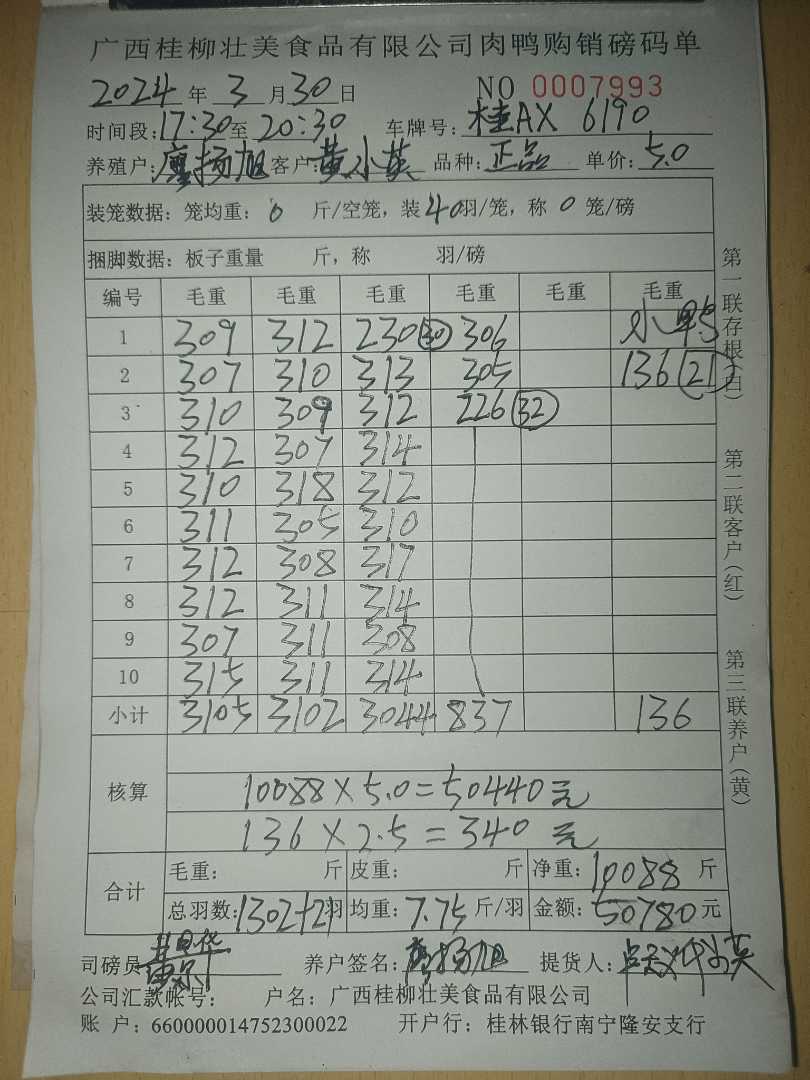 广西桂柳壮美食品有限公司肉鸭购销磅码单
2024年3月30日 NO 0007993
时间段:17:30至20:30 车牌号:桂AX 6190
养殖户:廖扬旭 客户:黄小英 品种:正品 单价:5.0
装笼数据:笼均重:0斤/空笼,装40羽/笼,称0笼/磅
捆脚数据:板子重量 斤,称 羽/磅
编号 毛重 毛重 毛重 毛重 毛重 毛重
1 309 312 230(30) 306 小鸭
2 307 310 313 305 136(21)
3 310 309 312 226(32)
4 312 307 314
5 310 318 312
6 311 305 310
7 312 308 317
8 312 311 314
9 307 311 308
10 315 311 314
小计 3105 3102 3044 837 136
核算
10088×5.0=50440元
136×2.5=340元
合计
毛重: 斤 皮重: 斤 净重:10088斤
总羽数:1302+21羽 均重:7.75斤/羽 金额:50780元
司磅员 养户签名:廖扬旭 提货人:
公司汇款帐号: 户名:广西桂柳壮美食品有限公司
账 户:660000014752300022 开户行:桂林银行南宁隆安支行
第一联存根(白)
第二联客户(红)
第三联养户(黄)